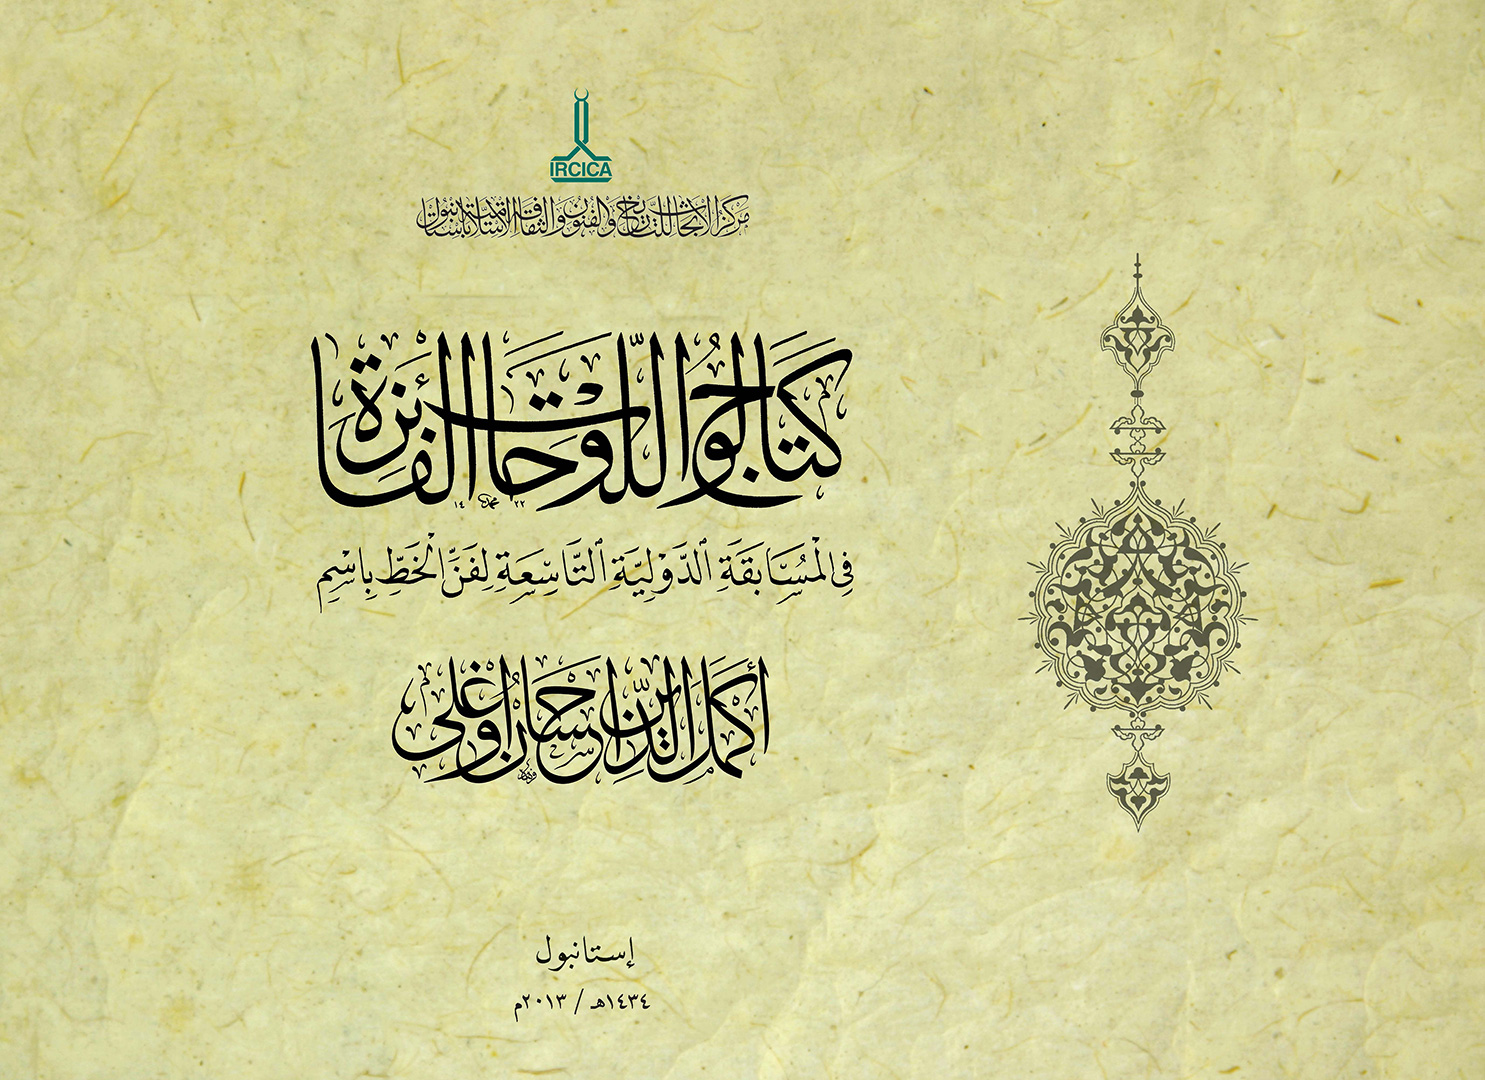 IRCICA
مركز الأبحاث للتاريخ والفنون والثقافة الإسلامية بإستانبول
كتالوج اللوحات الفائزة
١٤ محمد ٢٢
فِي الْمُسَابَقَةِ ٱلدَّوْلِيَّةِ ٱلتَّاسِعَةِ لِفَنِّ الْخَطِّ بِاسْمِ
أكمل الدين إحسان أوغلى
إستانبول
١٤٣٤هـ / ٢٠١٣م